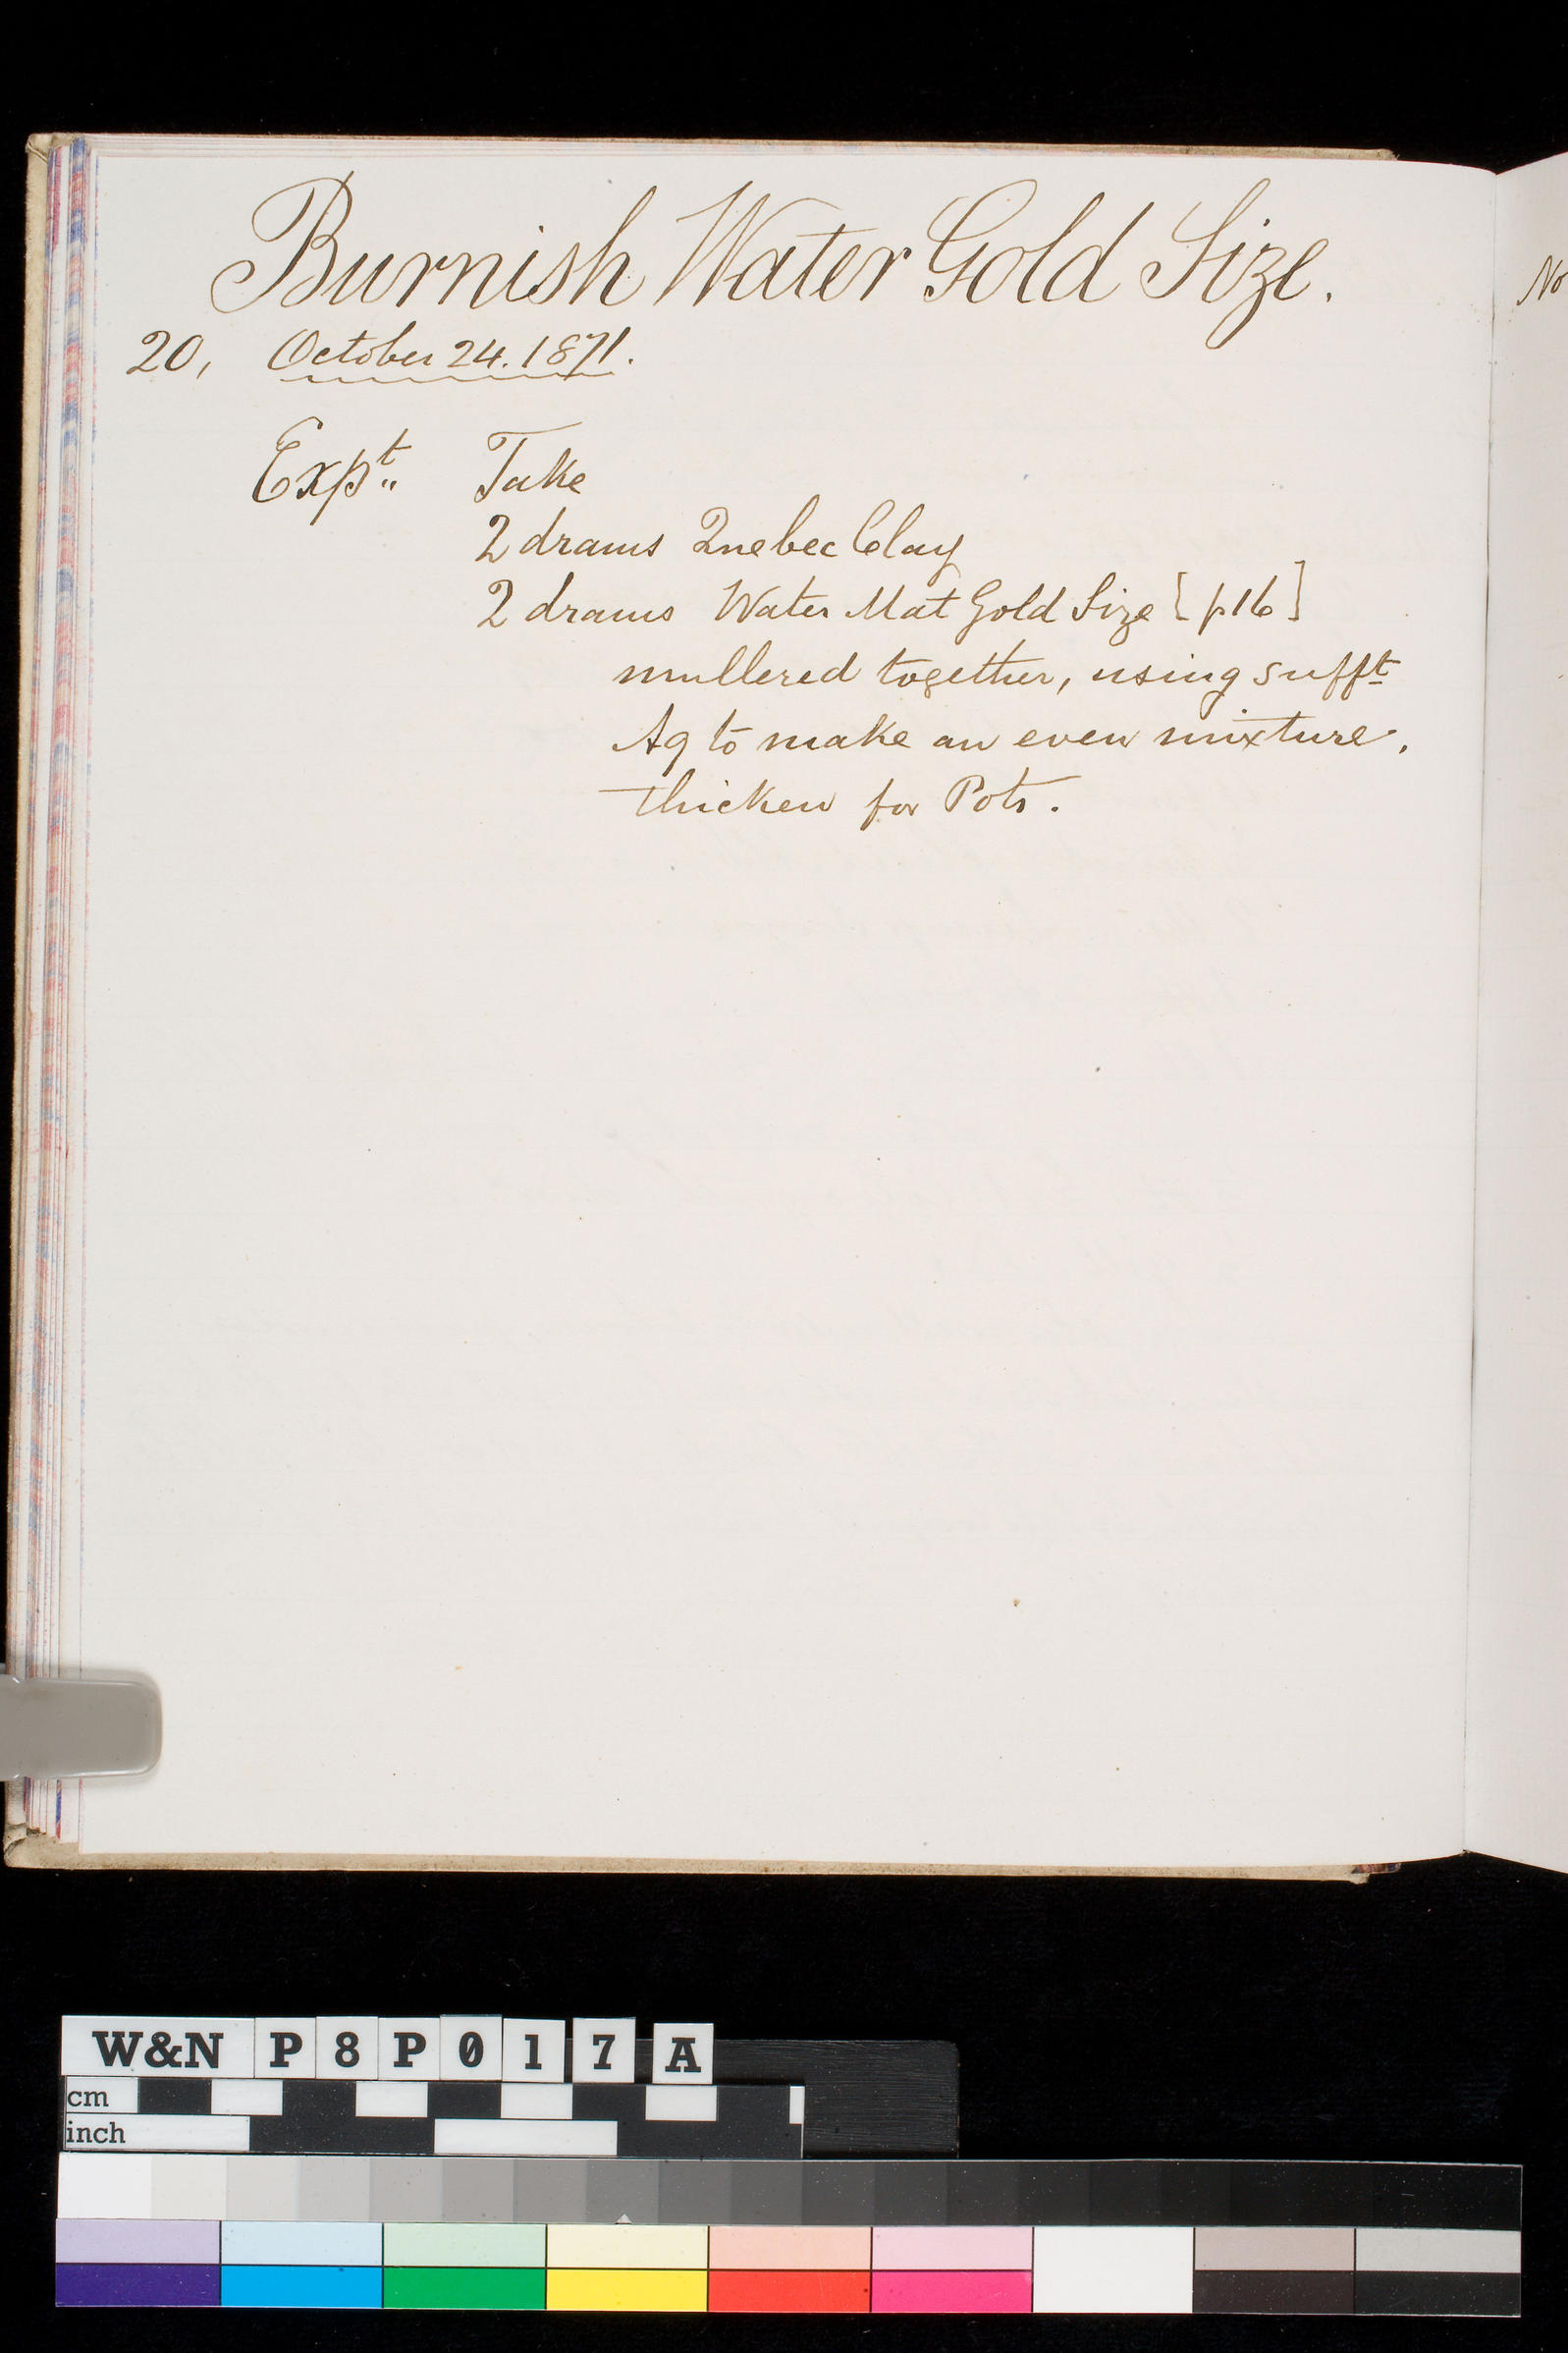 Burnish Water Gold Size.
20, October 24. 1871.
Expt. Take
2 drams Quebec Clay
2 drams Water Mat Gold Size [p16]
mullered together, using sufft
Aq to make an even mixture,
thicken for Pots.
No
W&N P8P017A
cm
inch